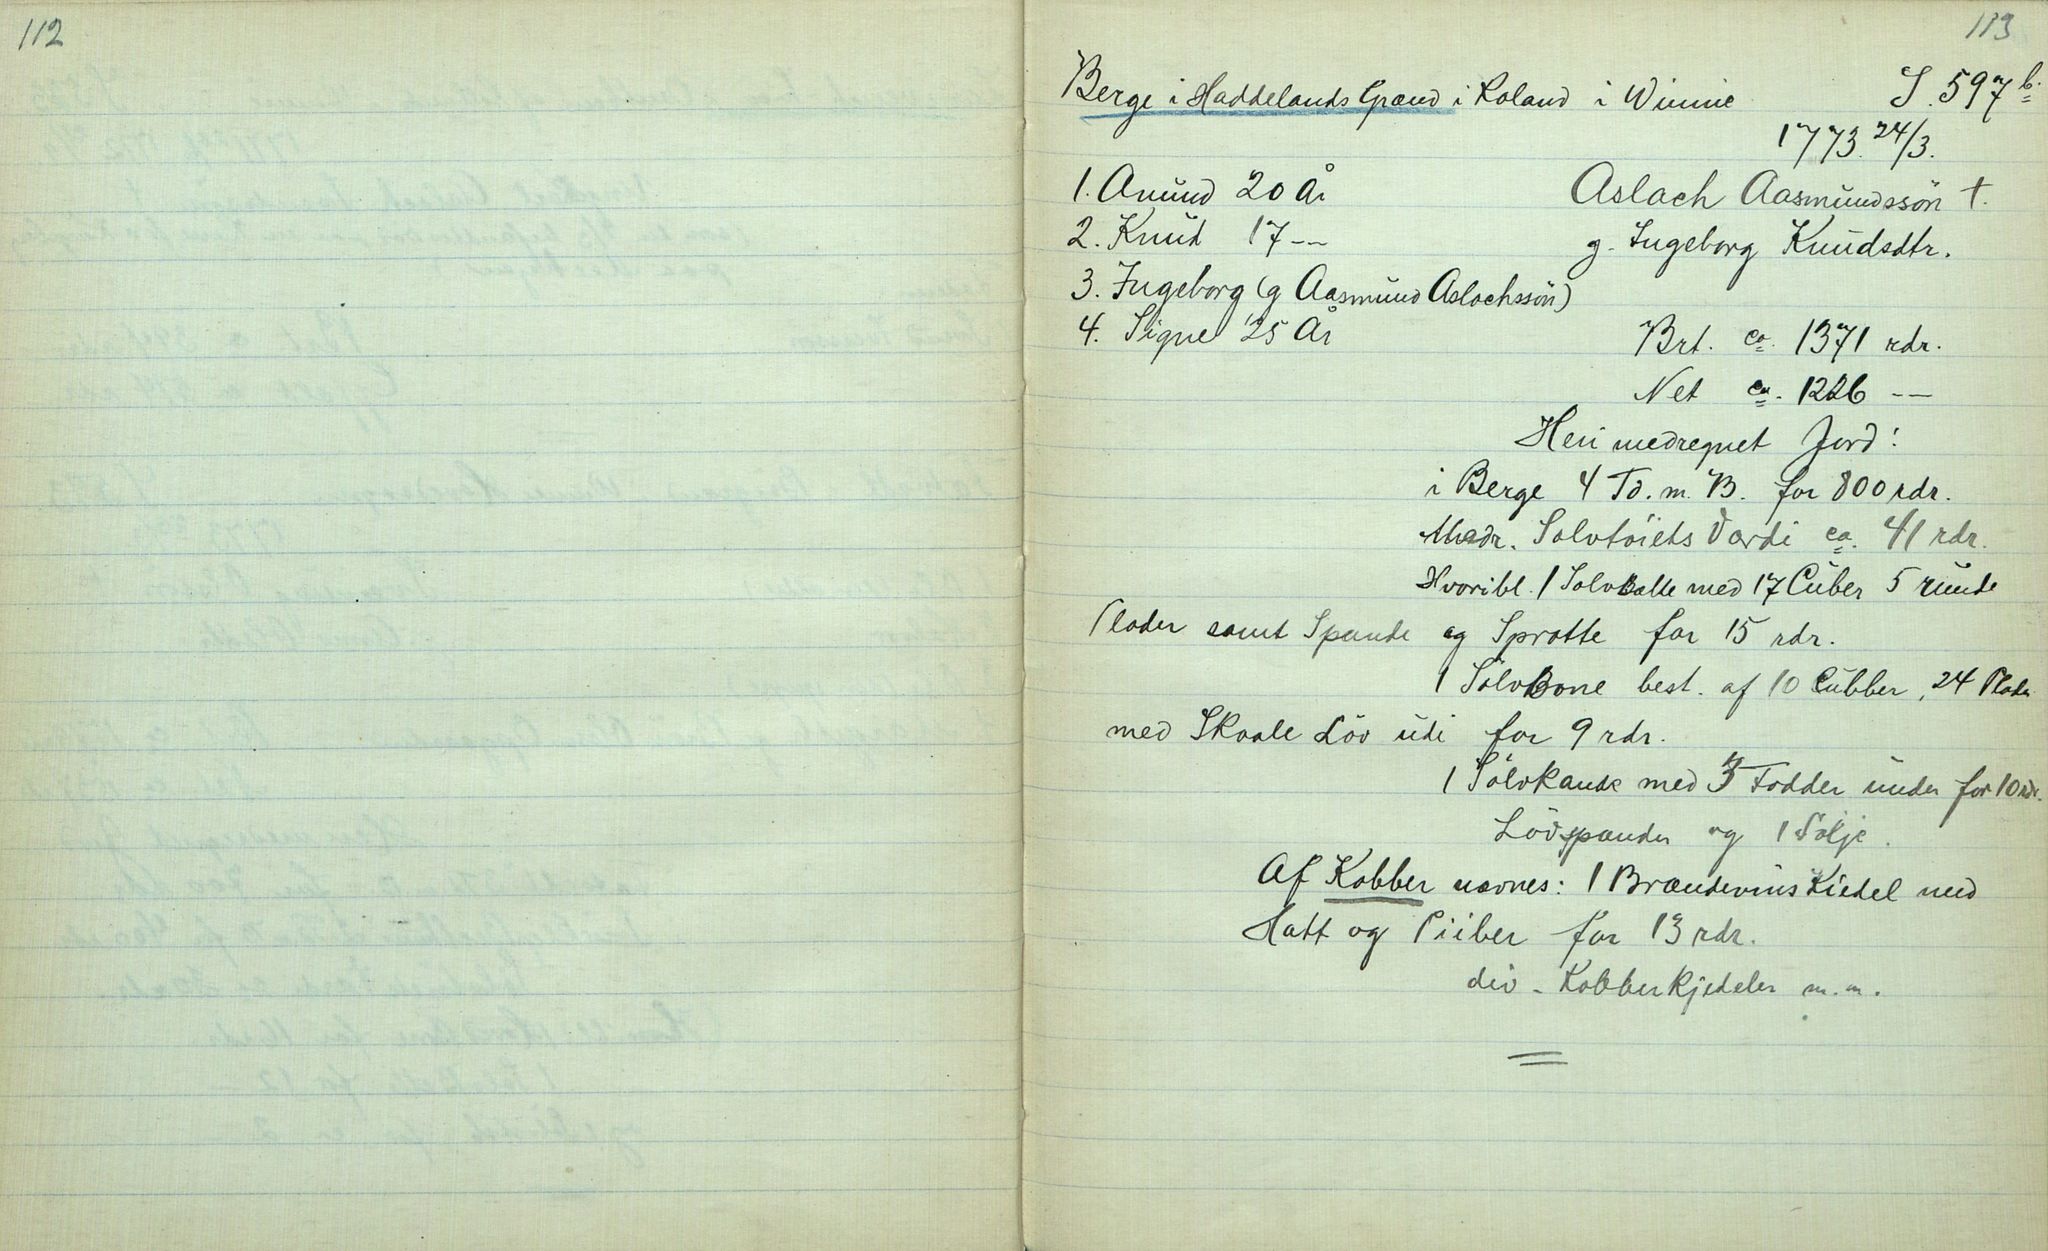 112
113
Berge i Haddelands Grænd i Roland i Winnie S. 597 b.
1773. 24/3.
1. Anund 20 År Aslach Aasmundssön †.
2. Knud 17 -- g. Ingeborg Knudsdtr.
3. Ingeborg (g Aasmund Aslachssön)
4. Signe 25 År Brt. ca. 1371 rdr.
Net ca. 1226 --
Heri medregnet Jord:
i Berge 4 Td. m. B. for 800 rdr.
Sølvtöiets Værdi ca. 41 rdr.
Hvoribl. 1 Sølvbælte med 17 Cuber 5 runde
Plader samt Spænde og Sprotte for 15 rdr.
1 Sölvbone best. af 10 Cubber, 24 Plader
med Skaale Löv udi for 9 rdr.
1 Sölvkande med 3 Fødder under for 10 rdr.
Lövspænder og 1 Sölje.
Af Kobber nævnes: 1 Brændevins Kiedel med
Hatt og Piiber for 13 rdr.
div. Kobberkjedeler m.m.